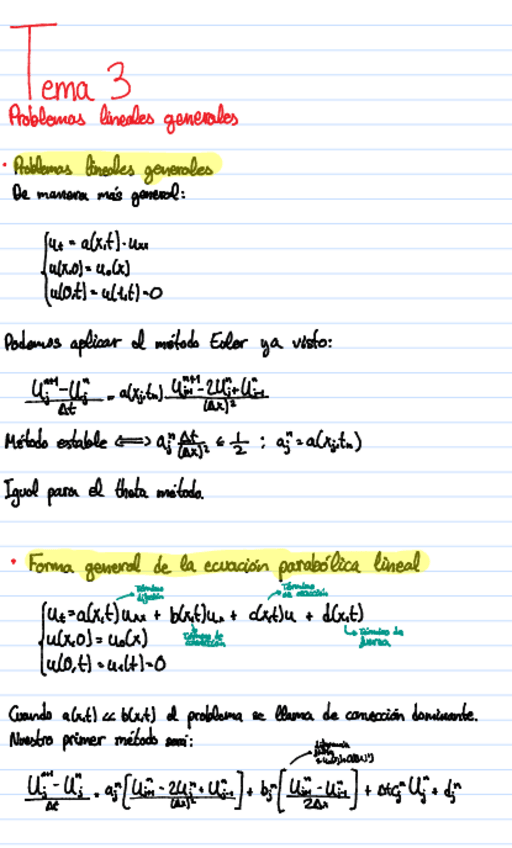 Tema 3
Problemas lineales generales
· Problemas lineales generales
De manera más general:
{ u_t = a(x,t)·u_xx
u(x,0) = u_0(x)
u(0,t) = u(1,t) = 0
Podemos aplicar el método Euler ya visto:
(U_j^{n+1} - U_j^n)/Δt = a(x_j,t_n) (U_{j+1}^{n+1} - 2U_j^n + U_{j-1}^n)/(Δx)^2
Método estable ⟺ a_j^n Δt/(Δx)^2 ≤ 1/2 ; a_j^n = a(x_j,t_n)
Igual para el theta método.
· Forma general de la ecuación parabólica lineal
Término difusión
Término de reacción
{ u_t = a(x,t)u_xx + b(x,t)u_x + c(x,t)u + d(x,t)
Término de
Término de fuerza
u(x,0) = u_0(x)
u(0,t) = u_1(t) = 0
Cuando a(x,t) << b(x,t) el problema se llama de convección dominante.
Nuestro primer método será:
(U_j^{n+1} - U_j^n)/Δt = a_j^n [(U_{j+1}^n - 2U_j^n + U_{j-1}^n)/(Δx)^2] + b_j^n [(U_{j+1}^n - U_{j-1}^n)/2Δx] + Δt c_j^n U_j^n + d_j^n